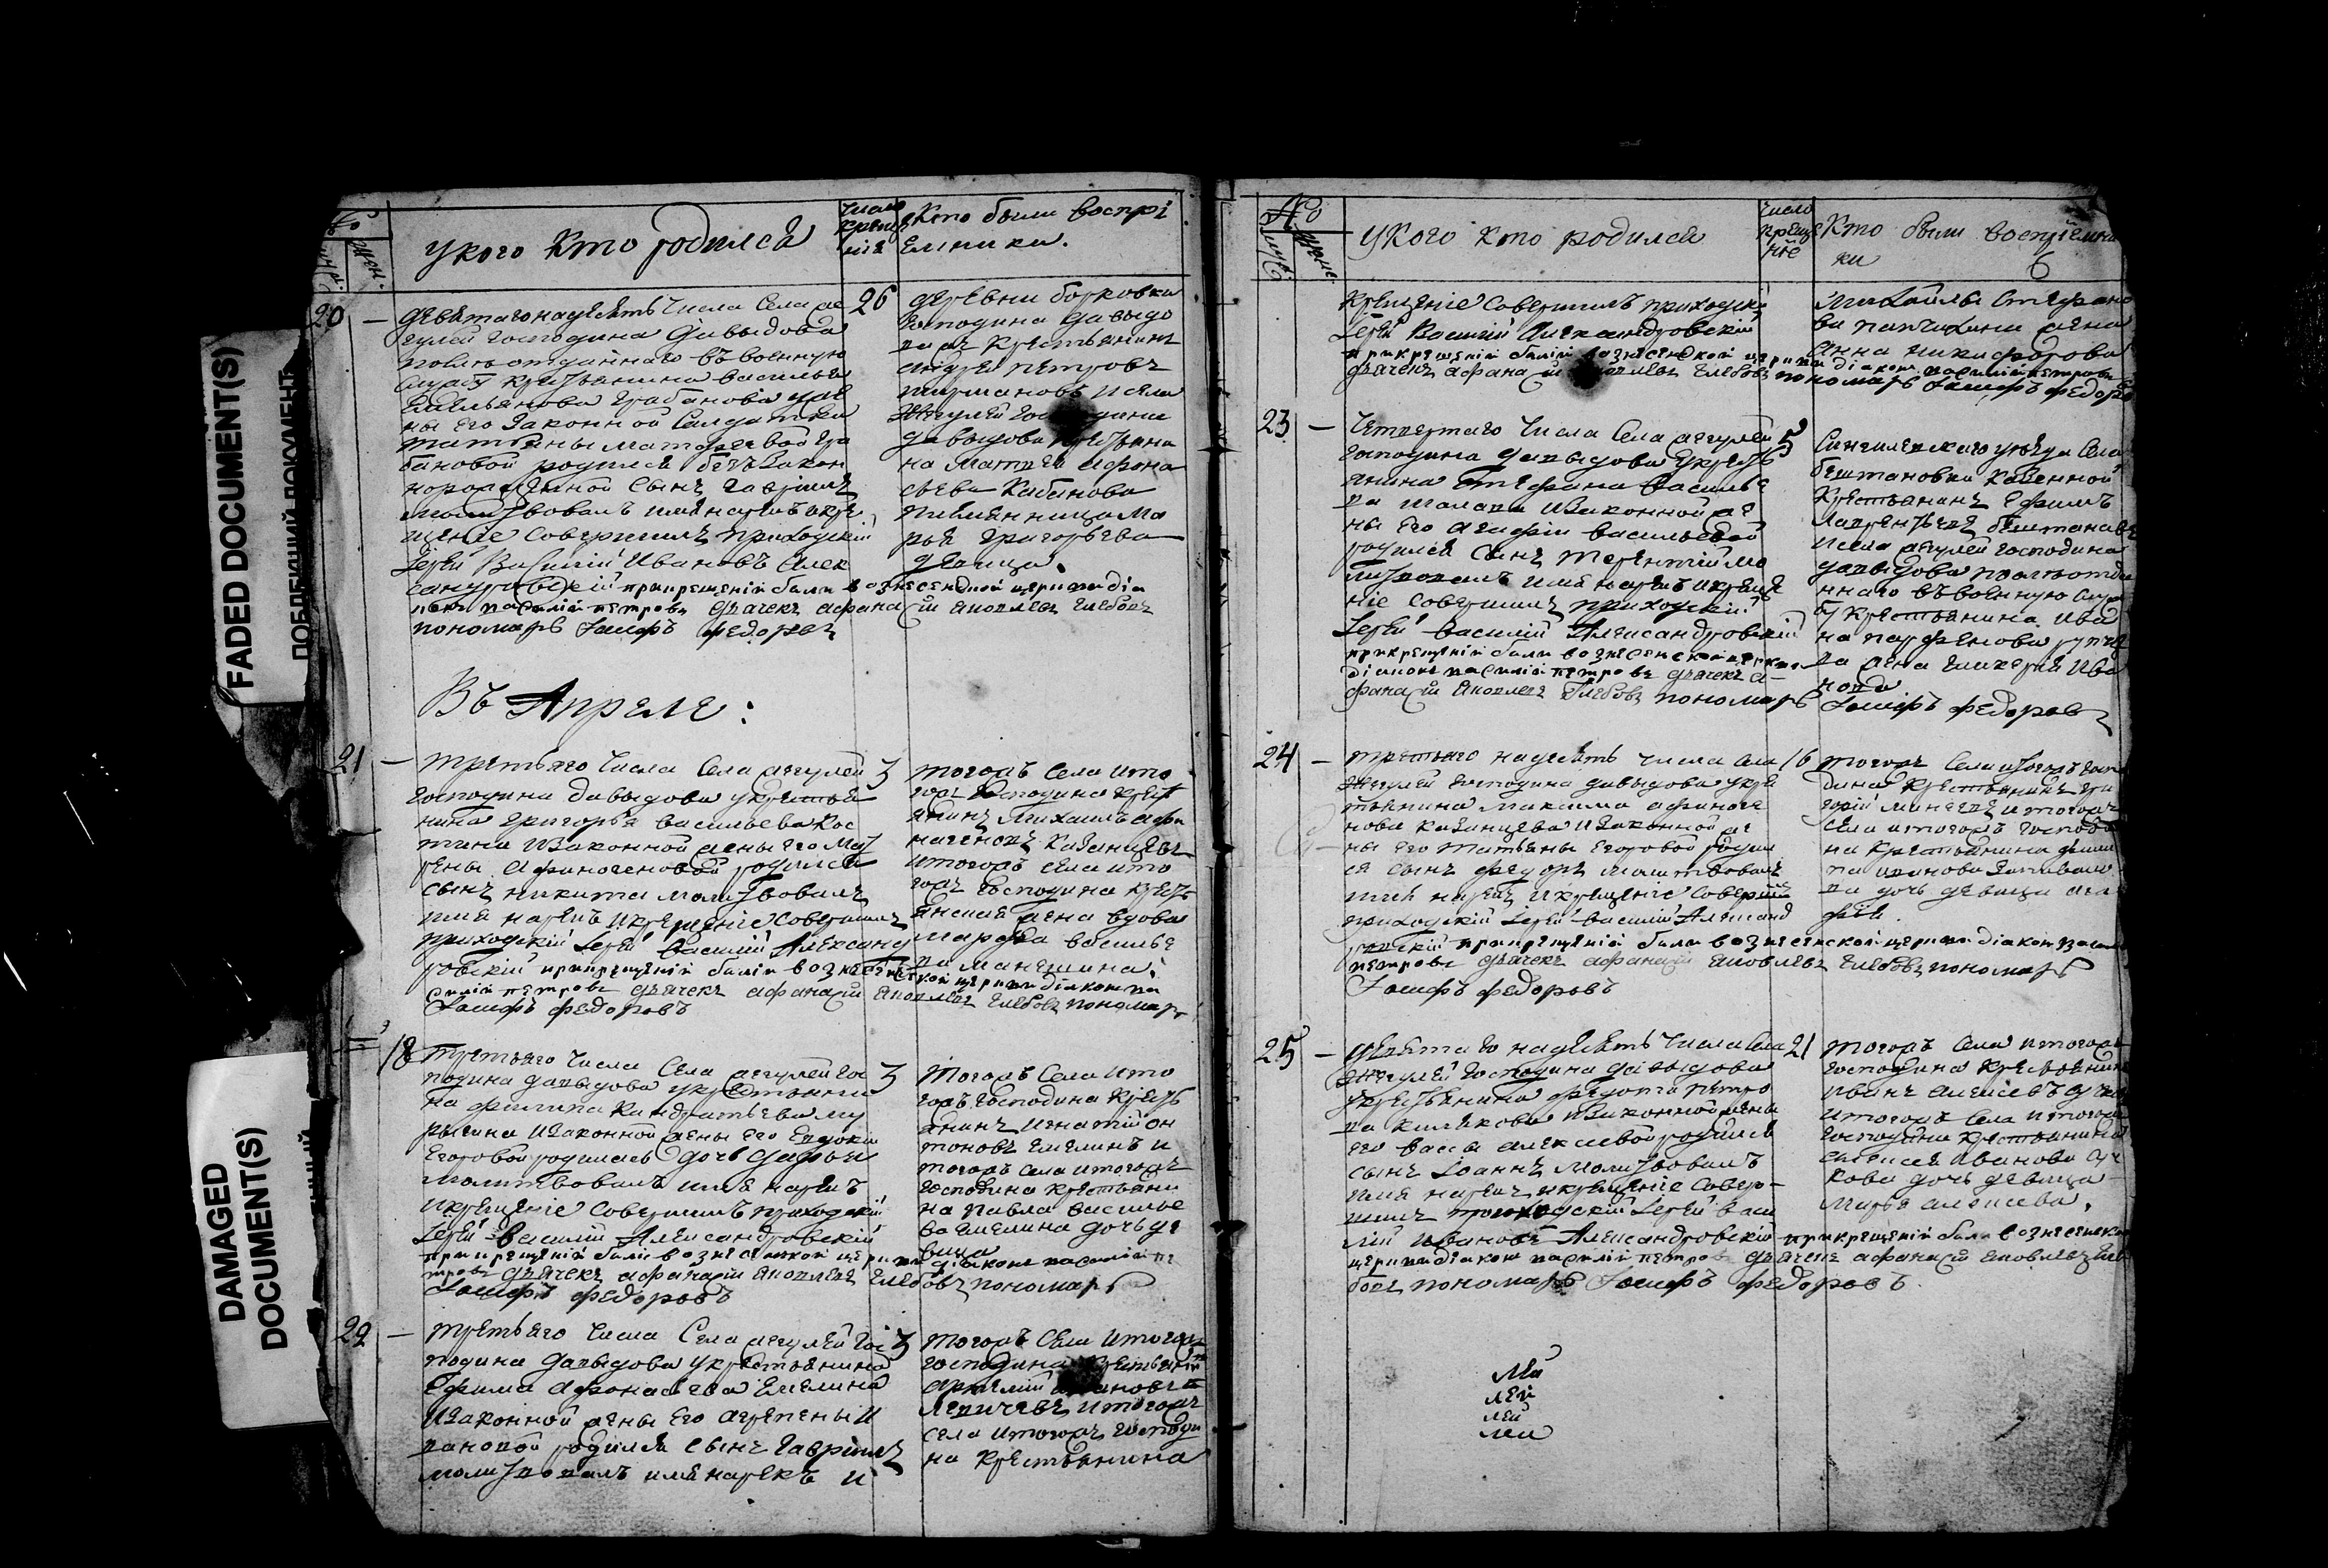 FADED DOCUMENT(S)
DAMAGED
DOCUMENT(S)
№
муж.
жен.
у кого кто родился
число
креще
нія
Кто были воспрі
емники.
20
девятагонадесять числа села же
гулей господина Давыдова
отданнаго въ военную
службу крестьянина Василья
Емельянова Грабанова
ны его законной солдатки
татьяны матфеевой гра
бановой родился беззакон
норожденной сынъ Гавріилъ
молитвовалъ имя нарекъ и кре
щеніе совершилъ приходскій
Іерей Василій Ивановъ Алек
сандровскій при крещеніи были вознесенской церкви діа
конъ василій петровъ дьячекъ афанасій яковлевъ глебовъ
пономарь Іосифъ федоровъ
26
деревни борковки
господина давыдо
ва крестьянинъ
андрей петровъ
и села
жегулей господина
давыдова крестьяни
на матвея афона
сьева Кабанова
племянница ма
рья григорьева
девица.
Въ Апреле:
21
третьяго числа села жегулей
господина давыдова у крестья
нина григорья васильева Кос
тина и законной жены его мат
рены афиногеновой родился
сынъ никита молитвовалъ
имя нарекъ и крещеніе совершилъ
приходскій Іерей василій Александ
ровскій при крещеніи были вознесенской церкви діаконъ ва
силій петровъ дьячекъ афанасій яковлевъ глебовъ пономарь
Іосифъ федоровъ
3
тогожъ села и то
гожъ господина крест
янинъ михаилъ афи
ногеновъ казанцевъ
и тогожъ села и то
гожъ господина кресть
янская жена вдова
марфа василье
ва манешина.
18
третьяго числа села жегулей гос
подина давыдова у крестьяни
на филипа кандратьева му
рыгина и законной жены его евдокіи
егоровой родилась дочь дарья
молитвовалъ имя нарекъ
и крещеніе совершилъ приходскій
Іерей василій Александровскій
при крещеніи были вознесенской церкви діаконъ василій пе
тровъ дьячекъ афанасій яковлевъ глебовъ пономарь
Іосифъ федоровъ
3
тогожъ села и то
гожъ господина кресть
янинъ игнатій он
тоновъ емелинъ и
тогожъ села и тогожъ
господина крестьяни
на павла василье
ва емелина дочь де
вица
22
третьяго числа села жегулей гос
подина давыдова у крестьянина
ефима афонасьева емелина
и законной жены его агрепены и
вановой родился сынъ гавріилъ
молитвовалъ имя нарекъ и
3
тогожъ села и тогожъ
господина крестьянинъ
артемій ивановъ
и тогожъ
села и тогожъ господи
на крестьянина
№
муж.
жен.
у кого кто родился
число
креще
ніе
Кто были воспріемни
ки
6
крещеніе совершилъ приходскій
Іерей Василій Александровскій
при крещеніи были вознесенской церкви діаконъ василій петровъ
дьячекъ афанасій яковлевъ глебовъ пономарь Іосифъ федоровъ
михайлы стефано
ва жена
анна никифорова
23
четвертаго числа села жегулей
господина давыдова у кресть
янина стефана василье
ва и законной же
ны его агафіи васильевой
родился сынъ терентій мо
литвовалъ имя нарекъ и креще
ніе совершилъ приходскій
Іерей василій Александровскій
при крещеніи были вознесенской церкви
діаконъ василій петровъ дьячекъ а
фанасій яковлевъ глебовъ пономарь
Іосифъ федоровъ
5
сингилеевскаго уезда села
бештановки казенной
крестьянинъ ефимъ
лаврентьевъ бештановъ
и села жегулей господина
давыдова отда
ннаго въ военную служ
бу крестьянина ива
на парфенова
ва жена гликерія ива
нова
24
третьяго надесять числа села
жегулей господина давыдова у кре
стьянина максима афиноге
нова казанцева и законной же
ны его татьяны егоровой родил
ся сынъ федоръ молитвовалъ
имя нарекъ и крещеніе совершилъ
приходскій Іерей василій Александ
ровскій при крещеніи были вознесенской церкви діаконъ васил
петровъ дьячекъ афанасій яковлевъ глебовъ пономарь
Іосифъ федоровъ
16
тогожъ села и тогожъ госпо
дина крестьянинъ гри
горій минеевъ и тогожъ
села и тогожъ господи
на крестьянина фили
па иванова
ва дочь девица ага
фія.
25
девятаго надесять числа села
жегулей господина давыдова
у крестьянина федота петро
ва и законной жены
его вассы алексеевой родился
сынъ іоаннъ молитвовалъ
имя нарекъ и крещеніе совер
шилъ приходскій Іерей васи
лій ивановъ Александровскій при крещеніи были вознесенской
церкви діаконъ василій петровъ дьячекъ афанасій яковлевъ гле
бовъ пономарь Іосифъ федоровъ
21
тогожъ села и тогожъ
господина крестьянинъ
иванъ алексеевъ
и тогожъ села и тогожъ
господина крестьянина
алексея иванова
кова дочь девица
марья алексеева.